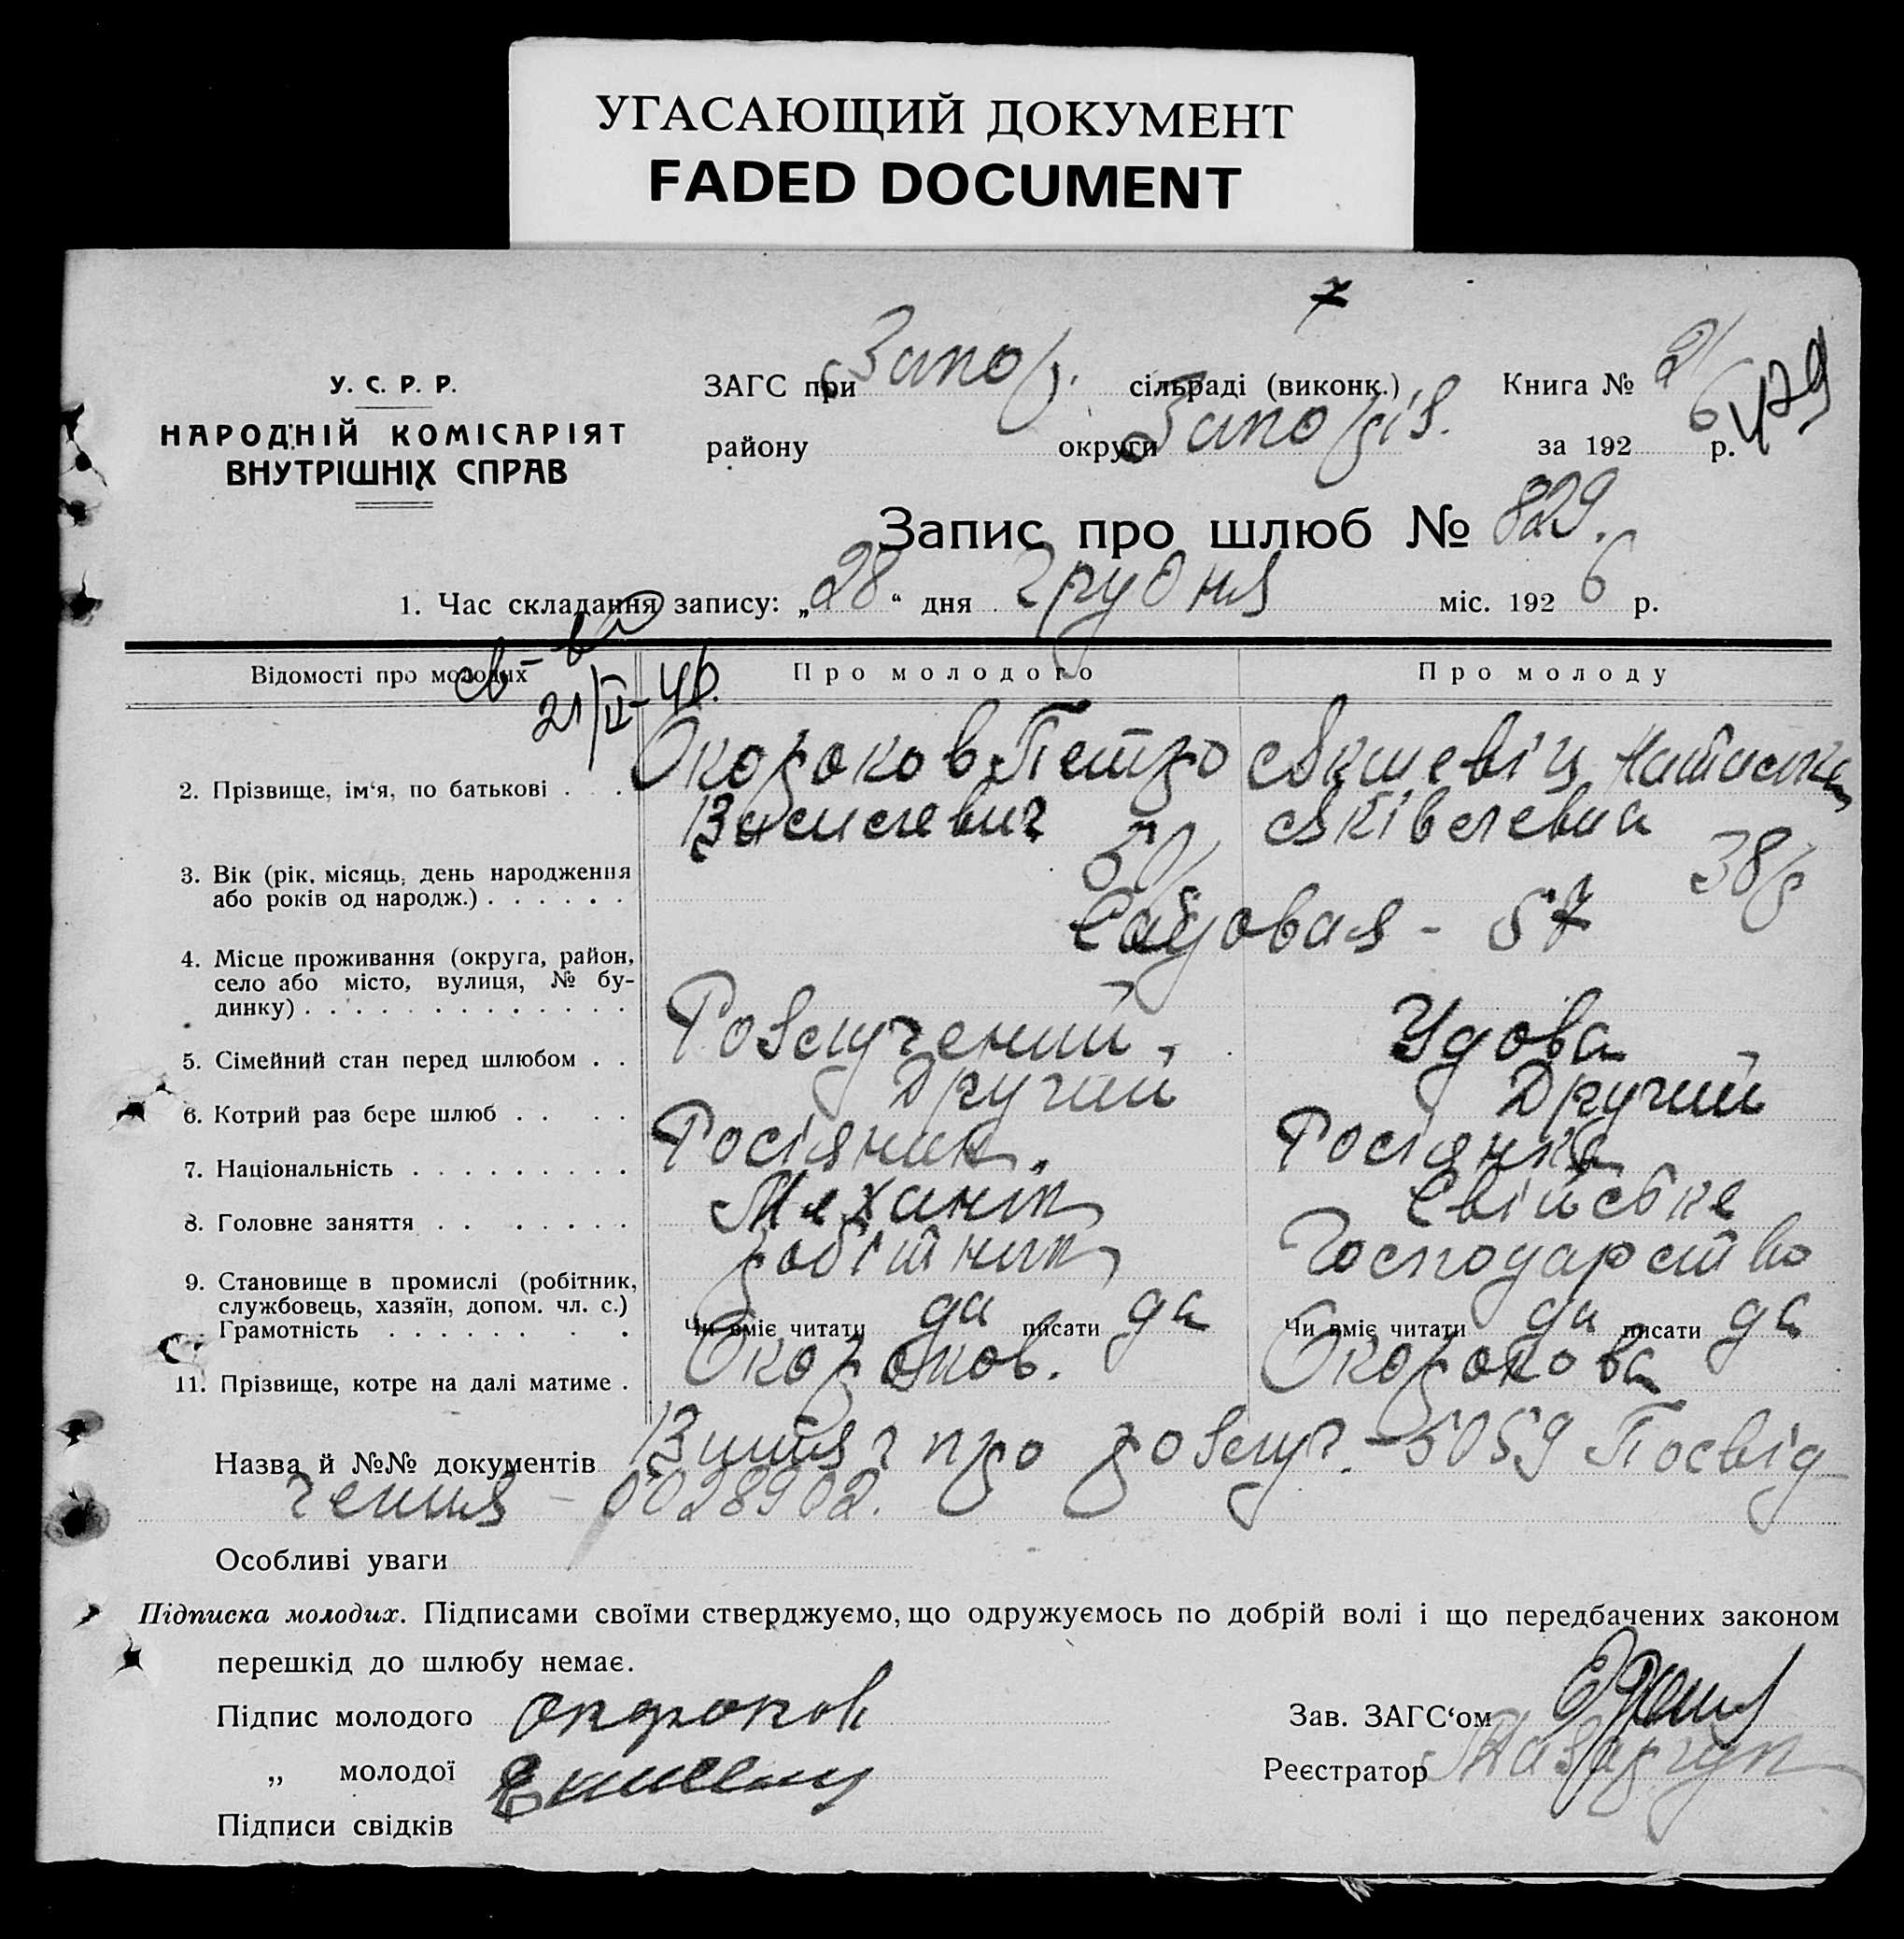 УГАСАЮЩИЙ ДОКУМЕНТ
FADED DOCUMENT
У. С. Р. Р.
НАРОДНІЙ КОМІСАРІЯТ
ВНУТРІШНІХ СПРАВ
ЗАГС при Запор. сільраді (виконк.) Книга № 21
району округи Запоріз. за 192 6 р.
429
Запис про шлюб № 829.
1. Час складання запису: „28“ дня Грудня міс. 192 6 р.
21/II-46.
Відомості про молодих Про молодого Про молоду
2. Прізвище, ім‘я, по батькові . . . Окороков Петро Якшевіц Наталка
Василевич Яківлевна
3. Вік (рік, місяць, день народження 50 38
або років од народж.) . . . . . .
Садовая - 57
4. Місце проживання (округа, район,
село або місто, вулиця, № бу-
динку) . . . . . . . . . . . . . .
5. Сімейний стан перед шлюбом . . Розлучений. Удова
6. Котрий раз бере шлюб . . . . Другий Другий
7. Національність . . . . . . . . . Росіянин. Росіянка
8. Головне заняття . . . . . . . Механік Свійське
9. Становище в промислі (робітник, робітник Господарство
службовець, хазяїн, допом. чл. с.)
Грамотність . . . . . . . . Чи вміє читати да писати да Чи вміє читати да писати да
11. Прізвище, котре на далі матиме . Окороков. Окорокова
Назва й №№ документів Витяг про розлуч. - 5059 Посвід
чення - 0028902.
Особливі уваги
Підписка молодих. Підписами своїми стверджуємо, що одружуємось по добрій волі і що передбачених законом
перешкід до шлюбу немає.
Підпис молодого Окороков Зав. ЗАГС‘ом
„ молодої Реєстратор
Підписи свідків